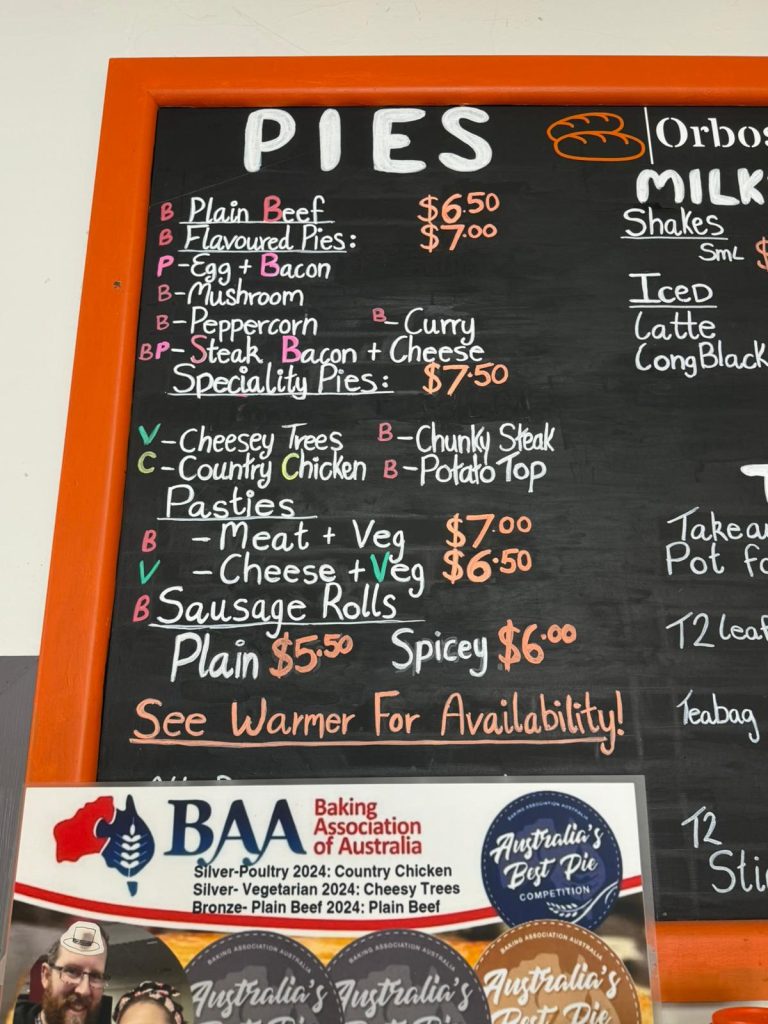 PIES
B Plain Beef $6.50
B Flavoured Pies: $7.00
P - Egg + Bacon
B - Mushroom
B - Peppercorn B - Curry
BP - Steak Bacon + Cheese
Speciality Pies: $7.50
V - Cheesey Trees B - Chunky Steak
C - Country Chicken B - Potato Top
Pasties
B - Meat + Veg $7.00
V - Cheese + Veg $6.50
B Sausage Rolls
Plain $5.50 Spicey $6.00
See Warmer For Availability!
Orbos
MILK
Shakes
SmL $
Iced
Latte
Long Black
T
Takeaw
Pot fo
T2 leaf
Teabag
T2
Sti
BAA Baking
Association
of Australia
Silver-Poultry 2024: Country Chicken
Silver- Vegetarian 2024: Cheesy Trees
Bronze- Plain Beef 2024: Plain Beef
BAKING ASSOCIATION AUSTRALIA
Australia's
Best Pie
COMPETITION
BAKING ASSOCIATION AUSTRALIA
Australia's
BAKING ASSOCIATION AUSTRALIA
Australia's
BAKING ASSOCIATION AUSTRALIA
Australia's
Best Pie